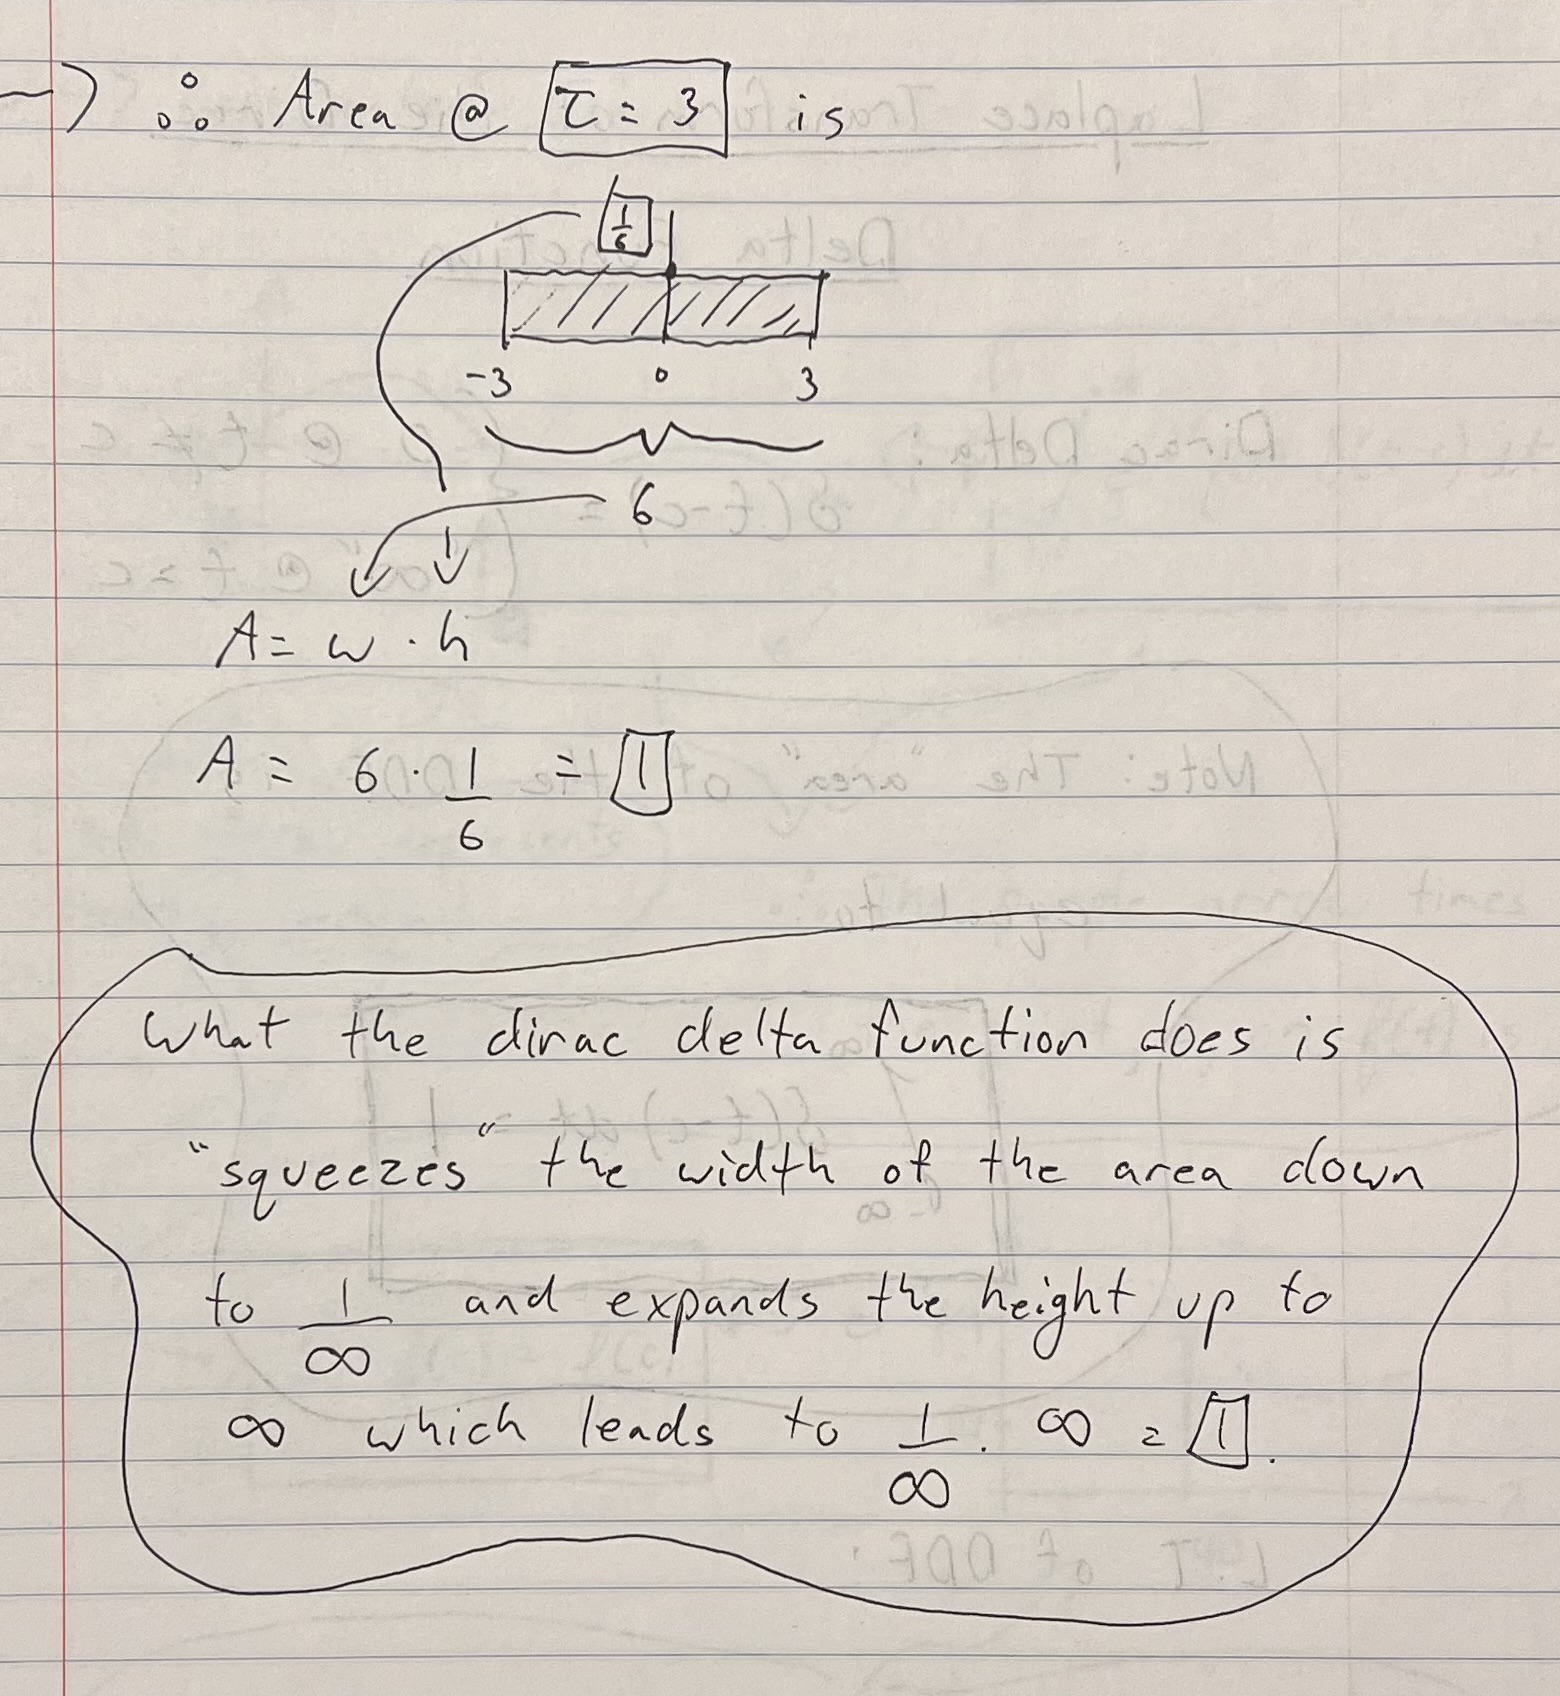 → ∴ Area @ τ = 3 is
1/6
-3 0 3
6
A = w · h
A = 6 · 1/6 = 1
What the dirac delta function does is
"squeezes" the width of the area down
to 1/∞ and expands the height up to
∞ which leads to 1/∞ · ∞ = 1.